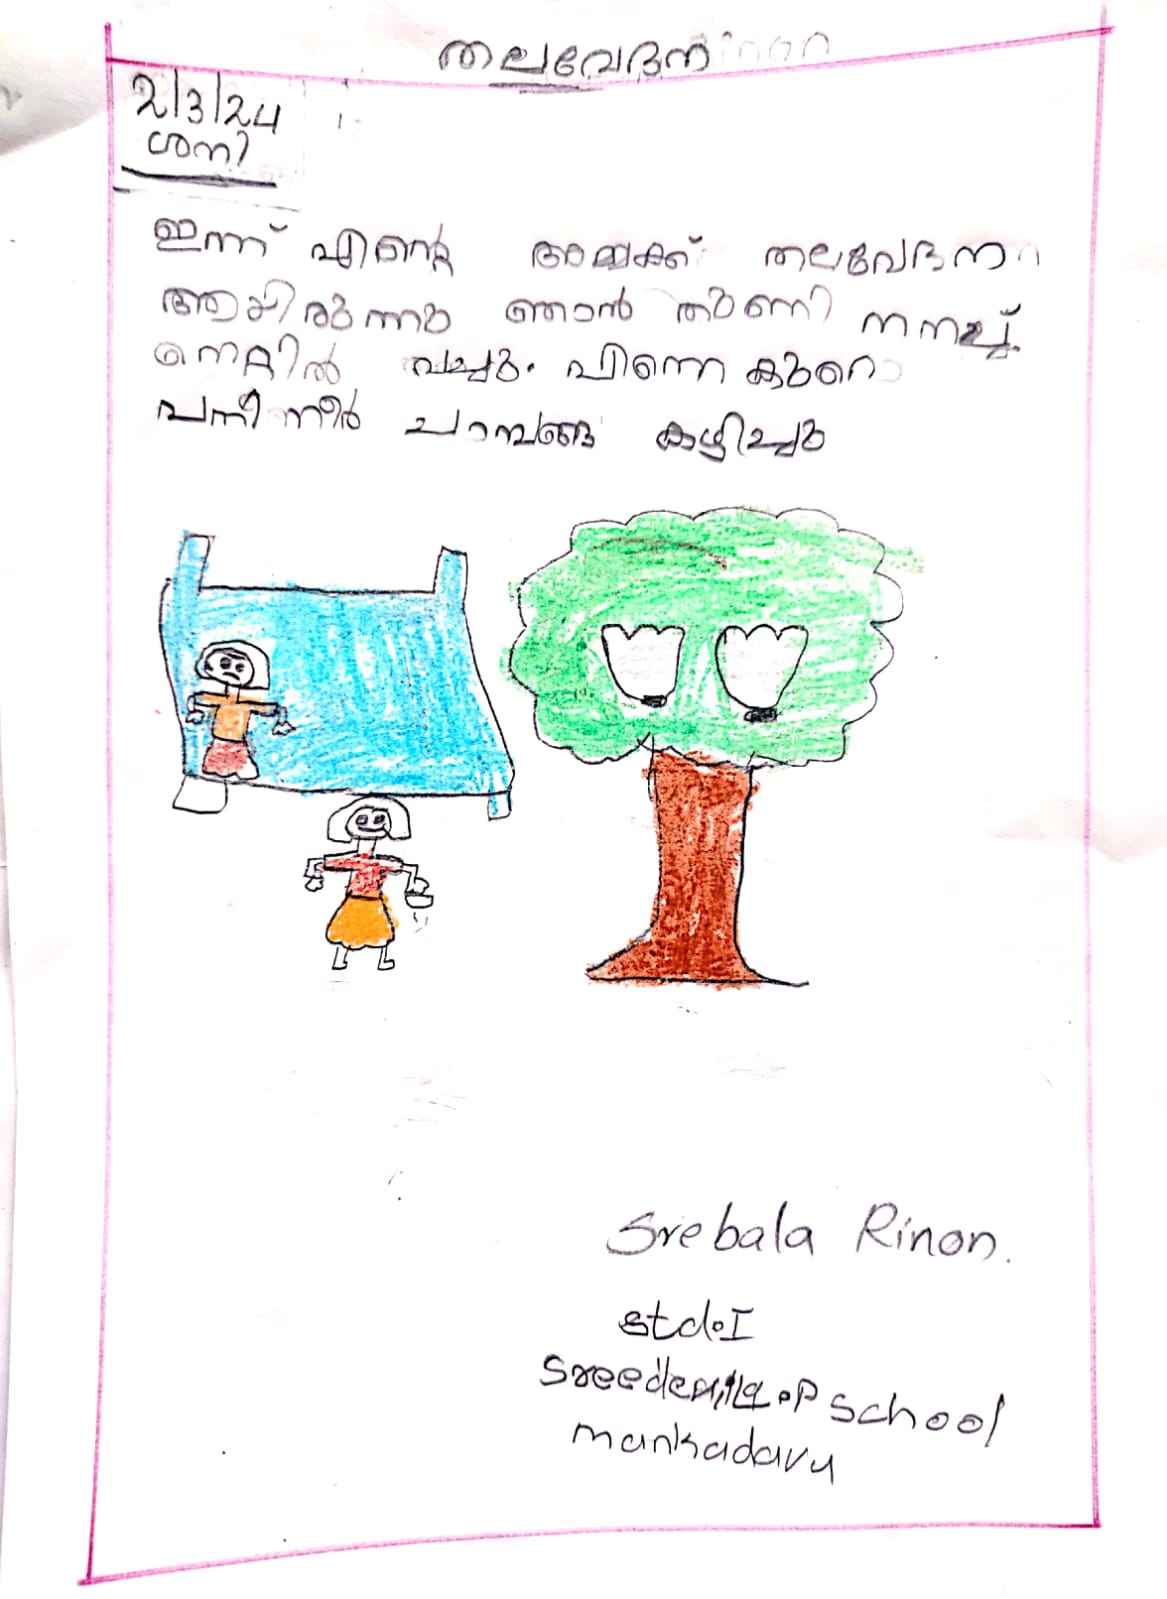 തലവേദന
2/3/24
ശനി
ഇന്ന് എന്റെ അമ്മക്ക് തലവേദന
ആയിരുന്നു ഞാൻ തുണി നനച്ച്
നെറ്റിൽ വച്ചു. പിന്നെ കുറെ
പനിനീർ ചാമ്പങ്ങ കഴിച്ചു
Srebala Rinon.
std.I
L.P School
mankadavu